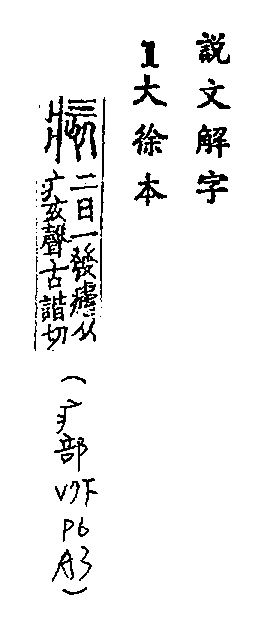 說文解字
1大徐本
痎二日一發瘧从
疒亥聲古諧切
(疒部V7下P6A3)